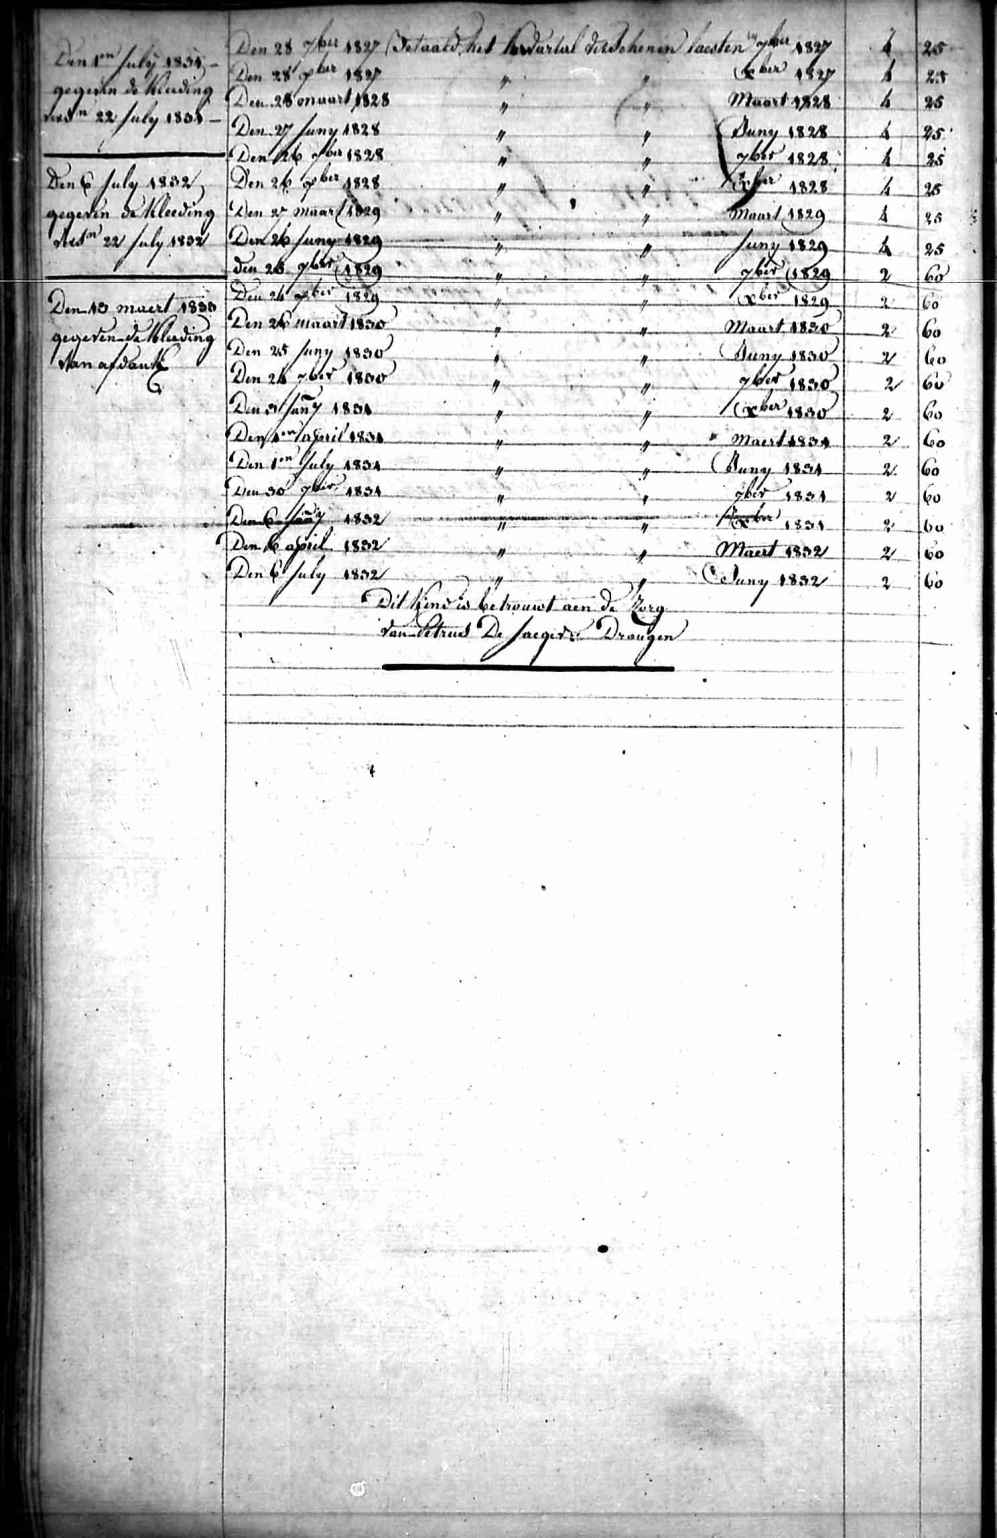 Den 1en July 1831
gegeven de Kleeding
versn 22 July 1831
Den 6 July 1832
gegeven de Kleeding
versn 22 July 1832
Den 13 maert 1833
gegeven de Kleeding
van afdank
Den 28 7ber 1827 Betaald het kwartal verschenen laesten 7ber 1827 4 25
Den 28 xber 1827 " " xber 1827 4 25
Den 28 maart 1828 " " Maart 1828 4 25
Den 27 Juny 1828 " " Juny 1828 4 25
Den 26 7ber 1828 " " 7ber 1828 4 25
Den 26 xber 1828 " " xber 1828 4 25
Den 27 maart 1829 " " Maart 1829 4 25
Den 26 Juny 1829 " " Juny 1829 4 25
Den 25 7ber 1829 " " 7ber 1829 2 60
Den 24 xber 1829 " " xber 1829 2 60
Den 26 maart 1830 " " Maart 1830 2 60
Den 25 Juny 1830 " " Juny 1830 2 60
Den 24 7ber 1830 " " 7ber 1830 2 60
Den 31 Jany 1831 " " xber 1830 2 60
Den 1en april 1831 " " " Maert 1831 2 60
Den 1en July 1831 " " Juny 1831 2 60
Den 30 7ber 1831 " " 7ber 1831 2 60
Den 6 Jany 1832 " " xber 1831 2 60
Den 6 april 1832 " " Maert 1832 2 60
Den 6 July 1832 " " Juny 1832 2 60
Dit Kind is betrouwt aen de Zorg
van Petrus De Jaeger Drongen